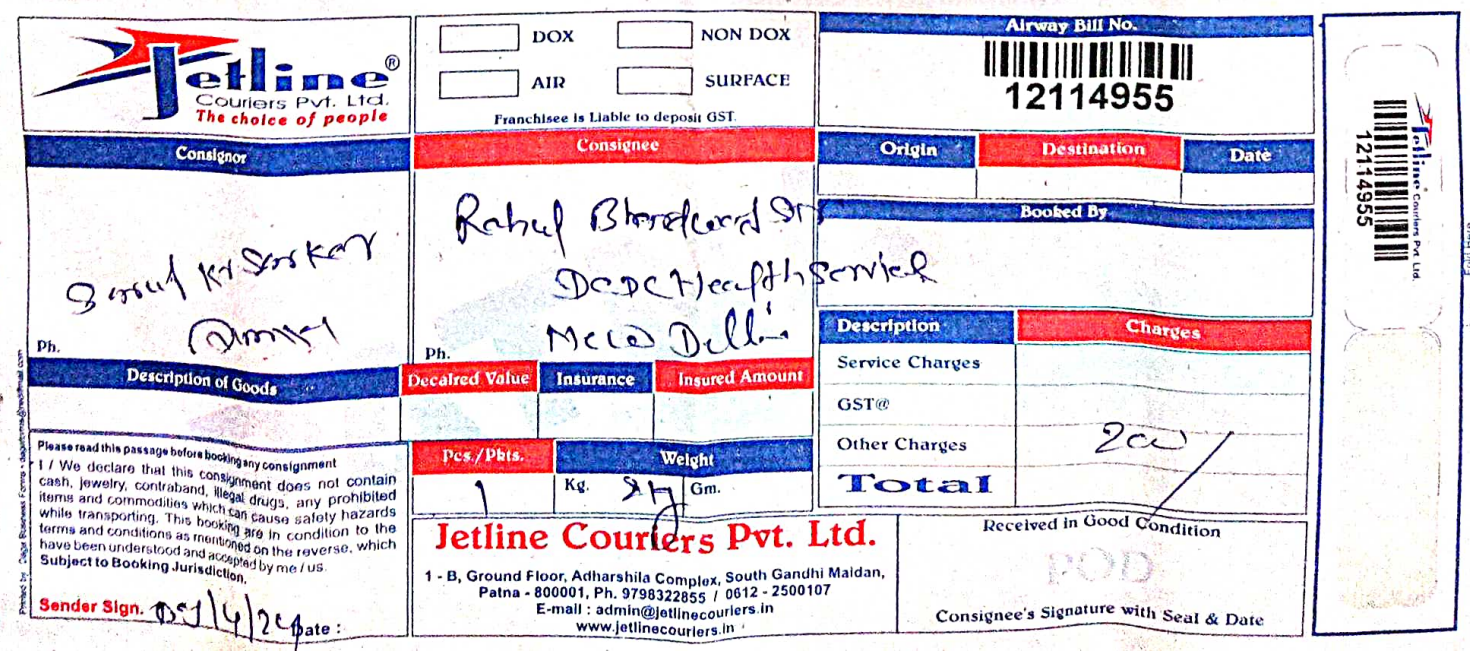 Jetline®
Couriers Pvt. Ltd.
The choice of people
DOX
NON DOX
AIR
SURFACE
Franchisee is Liable to deposit GST.
Airway Bill No.
12114955
Consignor
Ph.
Consignee
Rahul
Health Service
New Delhi
Ph.
Origin
Destination
Date
Booked By
Description of Goods
Decalred Value
Insurance
Insured Amount
Description
Charges
Service Charges
GST@
Other Charges
Total
200/
Pcs./Pkts.
1
Weight
Kg.
Gm.
Please read this passage before booking any consignment
I / We declare that this consignment does not contain
cash, jewelry, contraband, illegal drugs, any prohibited
items and commodities which can cause safety hazards
while transporting. This booking are in condition to the
terms and conditions as mentioned on the reverse, which
have been understood and accepted by me / us.
Subject to Booking Jurisdiction.
Sender Sign.
Date :
Jetline Couriers Pvt. Ltd.
1 - B, Ground Floor, Adharshila Complex, South Gandhi Maidan,
Patna - 800001, Ph. 9798322855 / 0612 - 2500107
E-mail : admin@jetlinecouriers.in
www.jetlinecouriers.in
Received in Good Condition
POD
Consignee's Signature with Seal & Date
Jetline Couriers Pvt. Ltd.
12114955